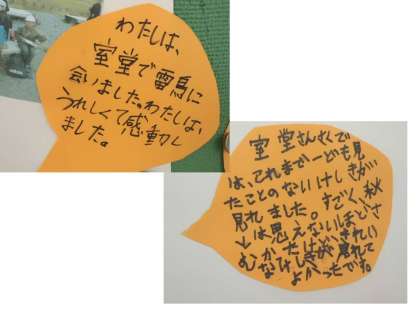 わたしは、
室堂で雷鳥に
会いました。わたしは、
うれしくて感動し
ました。
室堂さんさくで
は、これまで一ども見
たことのないけしきが
見れました。すごく、秋
は思えないほどさ
むかったけど、きれい
なけしきが見れて
よかったです。